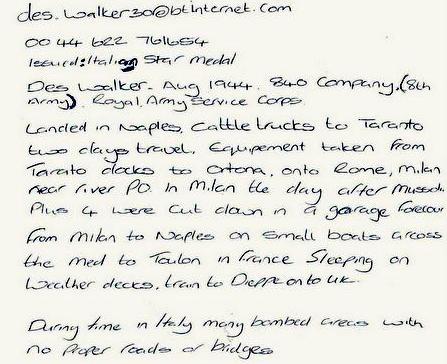 des.walker30@btinternet.com
00 44 622 761654
Issued: Italian Star medal
Des Walker. Aug 1944. 840 Company. (8th
Army). Royal Army Service Corps.
Landed in Naples. Cattle trucks to Taranto
two days travel. Equipement taken from
Tarato docks to Ortona, onto Rome, Milan
near river PO. In Milan the day after Mussol
Plus 4 were cut down in a garage forecour
From Milan to Naples on small boats across
the med to Toulon in France Sleeping on
Weather decks, train to Dieppe onto UK.
During time in Italy many bombed areas with
no proper roads or bridges